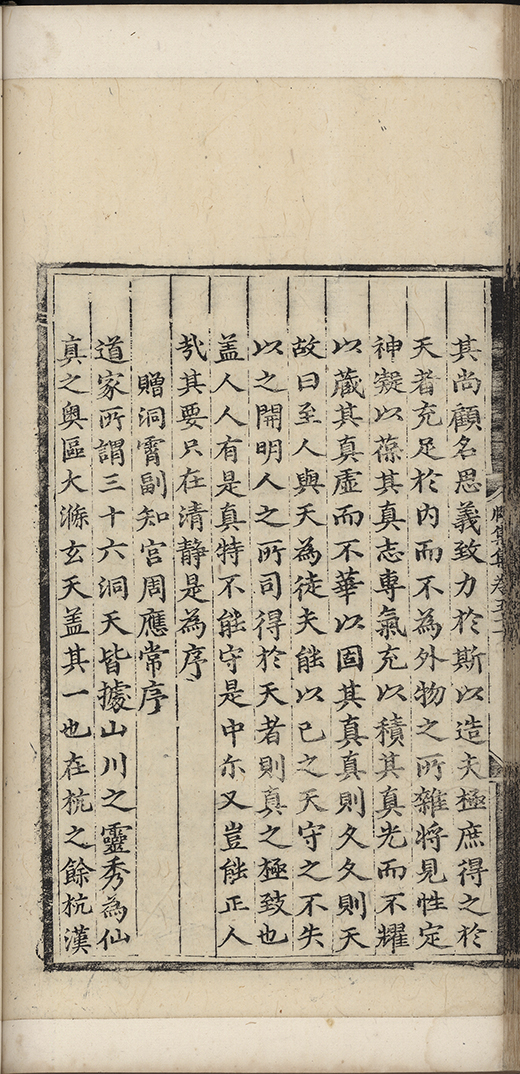 其尚顧名思義致力於斯以造夫極庶得之於
天者充足於内而不為外物之所雜將見性定
神凝以葆其真志專氣充以積其真光而不耀
以藏其真虛而不華以固其真真則久久則天
故曰至人與天為徒夫能以已之天守之不失
以之開明人之所司得於天者則真之極致也
盖人人有是真特不能守是中尓又豈能正人
㢤其要只在清静是為序
贈洞霄副知宫周應常序
道家所謂三十六洞天皆據山川之靈秀為仙
真之奥區大滌玄天盖其一也在杭之餘杭漢